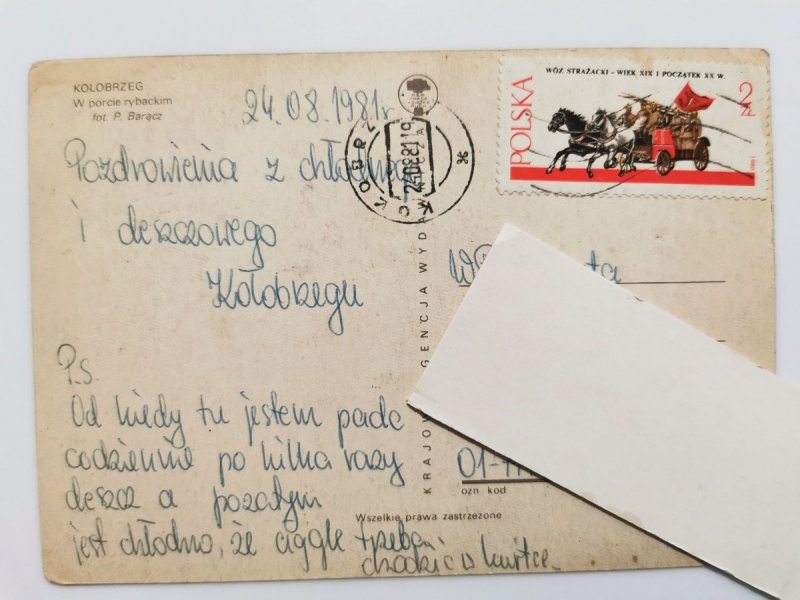 KOŁOBRZEG
W porcie rybackim
fot. P. Barącz
24.08.1981r
Pozdrowienia z chłodnego
i deszczowego
Kołobrzegu
P.S.
Od kiedy tu jestem pada
codziennie po kilka razy
deszcz a pozatym
jest chłodno, że ciągle trzeba
chodzić w kurtce.
WÓZ STRAŻACKI - WIEK XIX I POCZĄTEK XX W.
POLSKA
2 ZŁ
KRAJOWA AGENCJA WYDAWNICZA
01-
ozn kod
Wszelkie prawa zastrzeżone